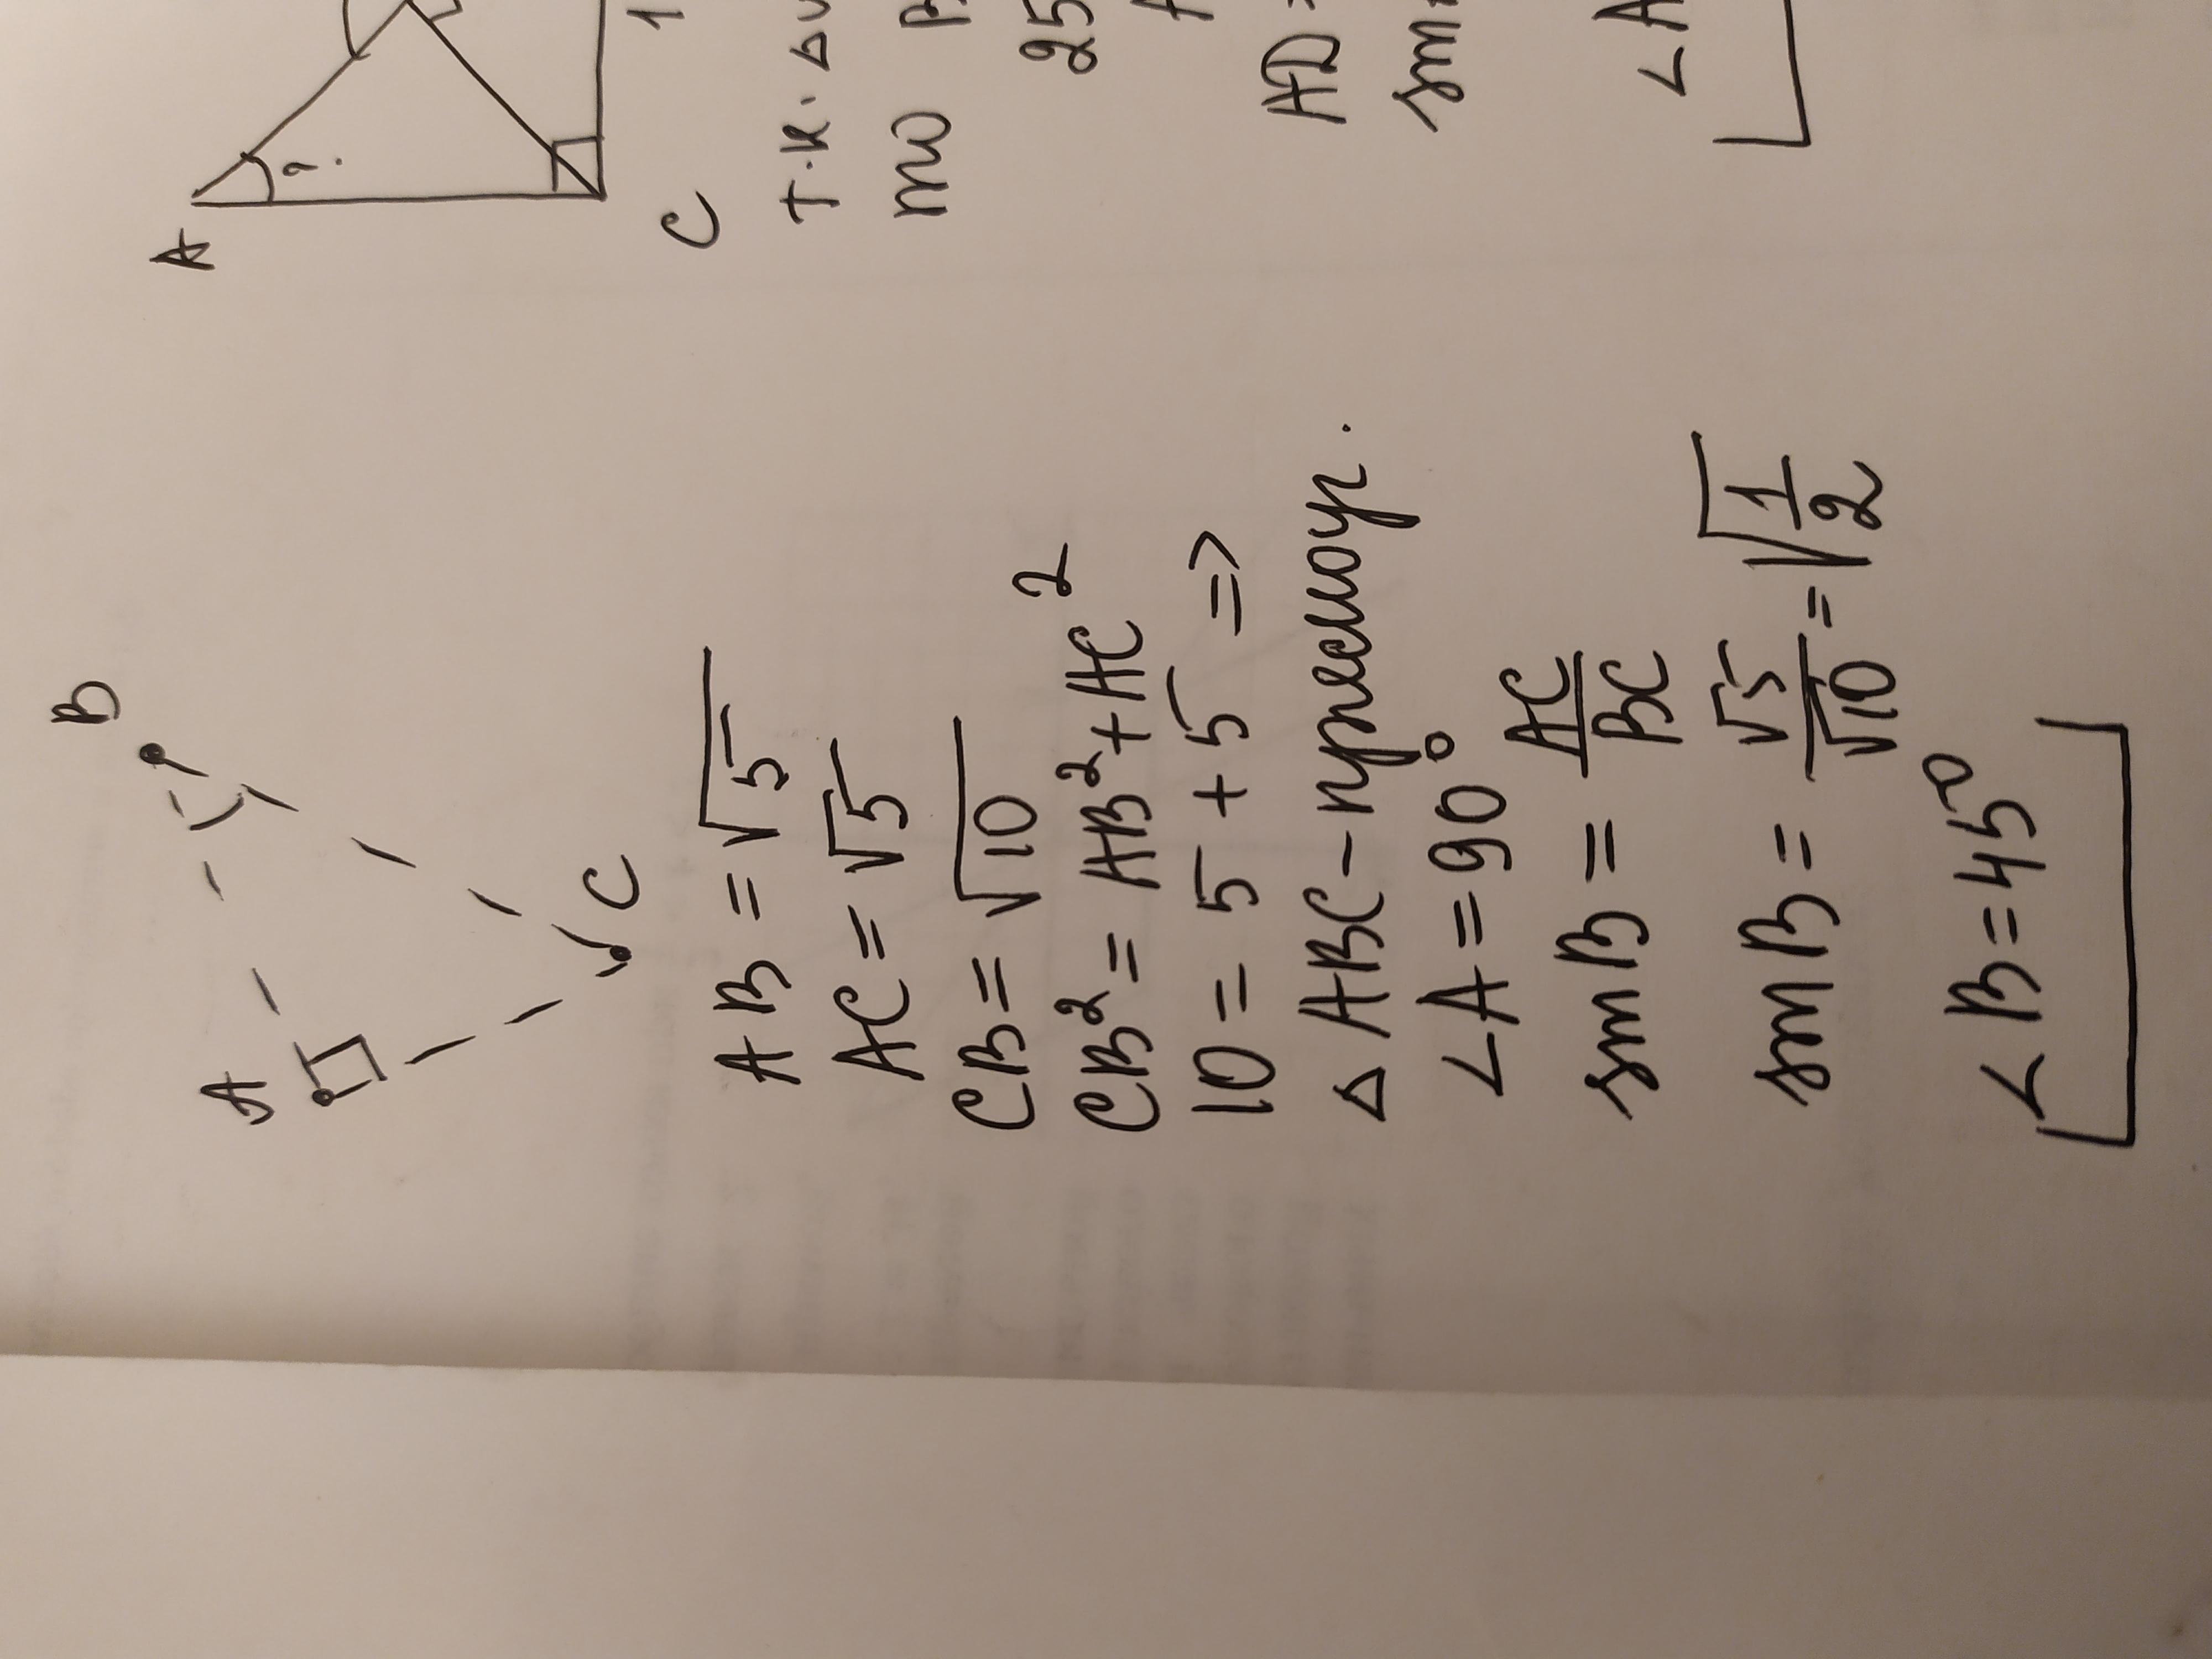 A
B
C
AB = √5
AC = √5
CB = √10
CB² = AB² + AC²
10 = 5 + 5 =>
△ ABC - прямоуг.
∠A = 90°
sin B = AC/BC
sin B = √5/√10 = √1/2
∠B = 45°
A
?
C
1
т.к. △
то
25
AD =
sin
∠A